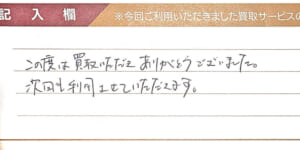 記入欄 ※今回ご利用いただきました買取サービスの
この度は買取いただきありがとうございました。
次回も利用させていただきます。